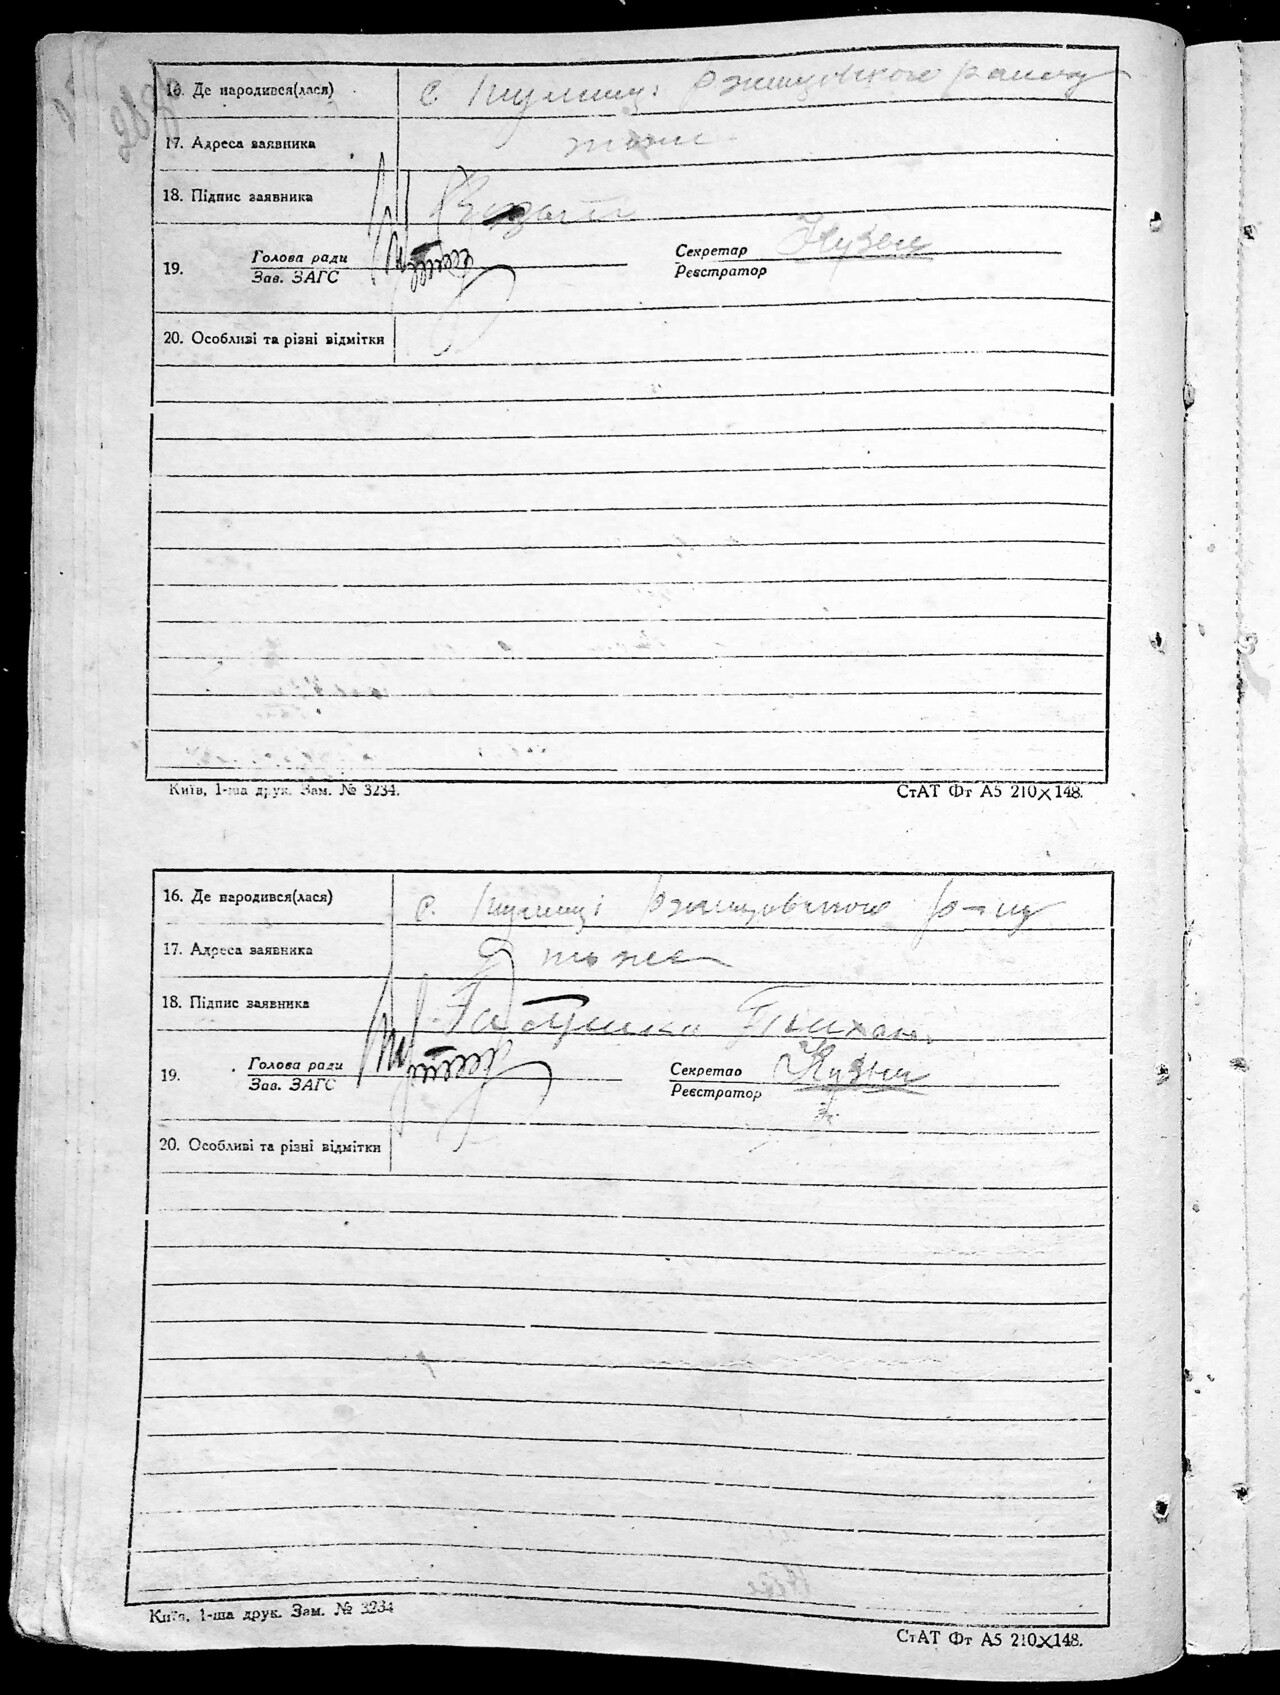 16. Де народився(лася) с. Тулинці Ржищівского району
17. Адреса заявника тоже
18. Підпис заявника
Голова ради Секретар Кузьм
19.
Зав. ЗАГС Реєстратор
20. Особливі та різні відмітки
Київ, 1-ша друк. Зам. № 3234. СтАТ Фт А5 210×148.
16. Де народився(лася) с. Тулинці Ржищовського р-ну
17. Адреса заявника тоже
18. Підпис заявника
Голова ради Секретар Кузьм
19.
Зав. ЗАГС Реєстратор
20. Особливі та різні відмітки
Київ, 1-ша друк. Зам. № 3234 СтАТ Фт А5 210×148.